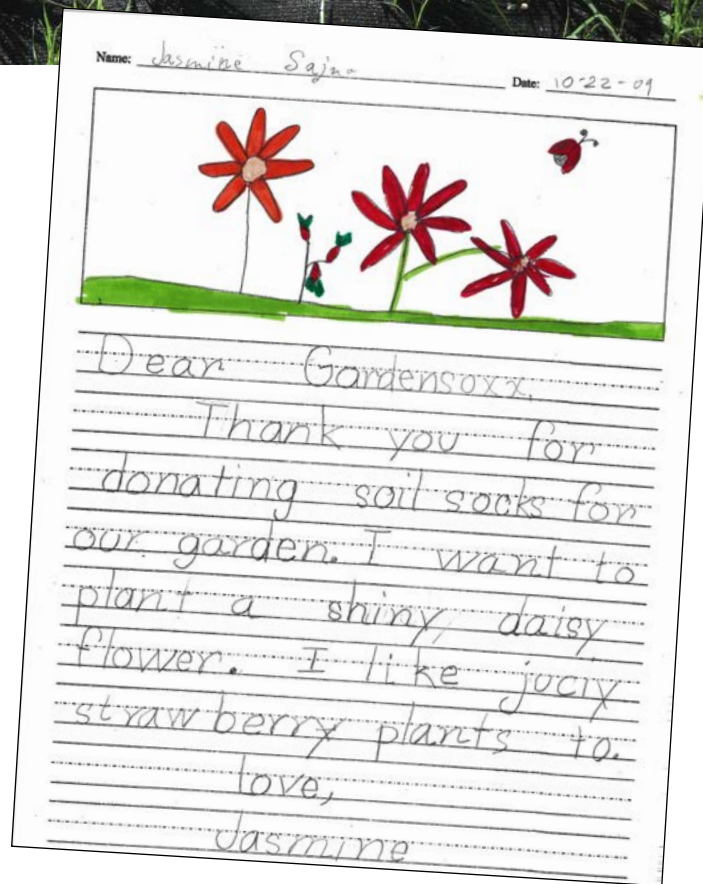 Name: Jasmine Sajna
Date: 10-22-09
Dear Gardensoxx,
Thank you for
donating soil socks for
our garden. I want to
plant a shiny daisy
flower. I like juciy
strawberry plants to.
love,
Jasmine